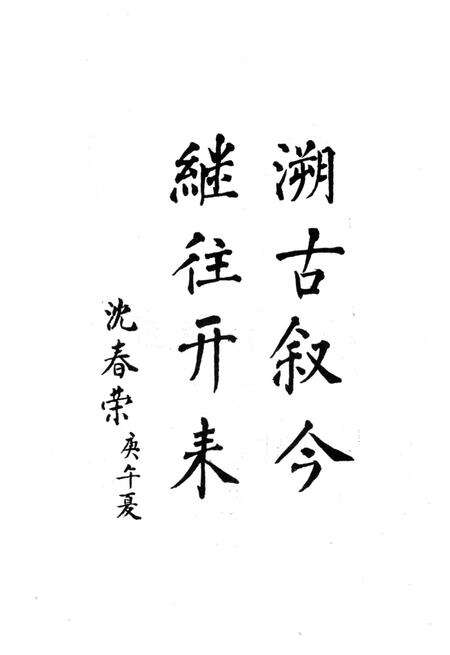 溯古叙今
继往开来
沈春荣
庚午夏